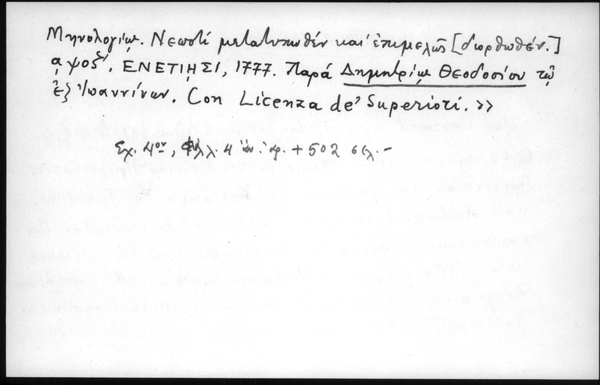 Μηνολογίῳ. Νεωστί μετατυπωθέν καί ἐπιμελῶς [διορθωθέν.]
αψοζʹ. ΕΝΕΤΙΗΣΙ, 1777. Παρά Δημητρίῳ Θεοδοσίου τῷ
ἐξ Ἰωαννίνων. Con Licenza de' Superiori. »
Σχ. 4ον, φύλλ. 4 ἄν. ἀρ. + 502 σελ. -